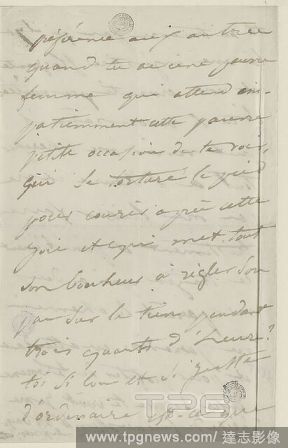 préférence aux autres
quand tu as une jeune
femme qui attend im-
patiemment cette pauvre
petite occasion de te voir,
qui se torture le pied
pour courir après cette
joie et qui met tout
son bonheur à régler son
pas sur le tien pendant
trois quarts d'heure?
toi si bon et si juste
d'ordinaire
TPG
www.tpgnews.com / 達志影像